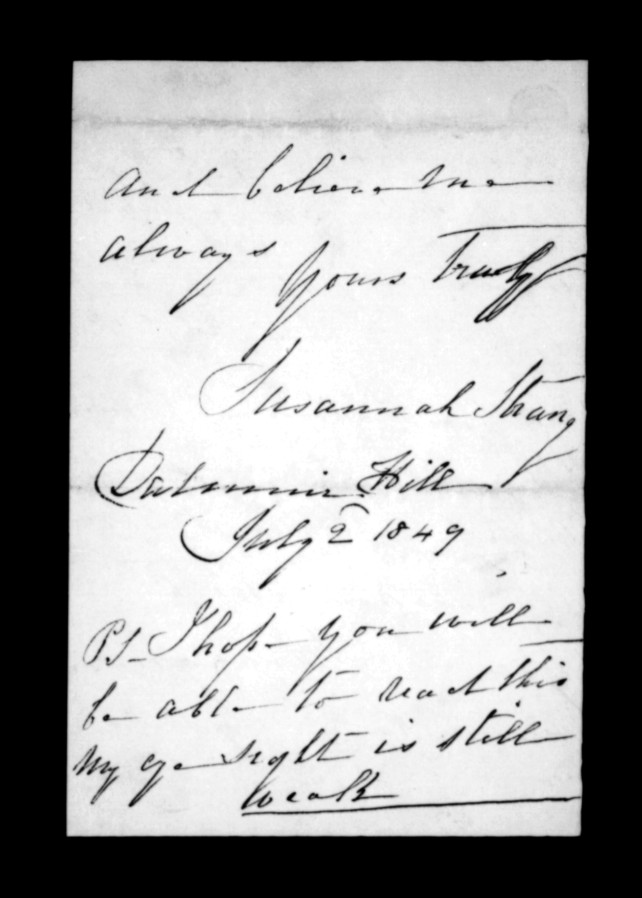 and believe me
always
yours truly
Susannah Strang
Hill
July 2 1849
PS I hope you will
be able to read this
my eye sight is still
weak